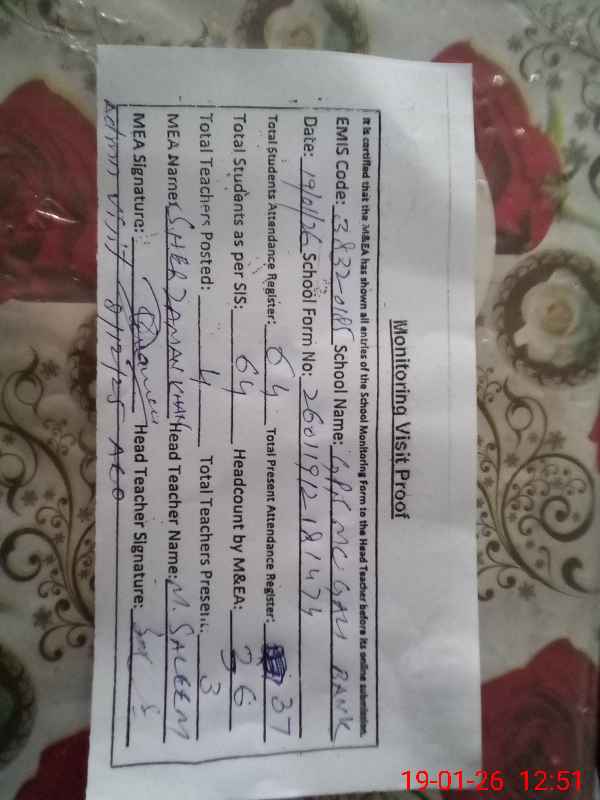 Monitoring Visit Proof
It is certified that the M&EA has shown all entries of the School Monitoring Form to the Head Teacher before its online submission.
EMIS Code: 3832-0185 School Name: GPS MC GALI BANK
Date: 19/01/26 School Form No: 260119121811474
Total Students Attendance Register: 64 Total Present Attendance Register: 37
Total Students as per SIS: 64 Headcount by M&EA: 36
Total Teachers Posted: 4 Total Teachers Present: 3
MEA Name: SHER ZAMAN KHAN Head Teacher Name: M. SALEEM
MEA Signature: Head Teacher Signature:
Admn visit 8/12/25 AEO
19-01-26 12:51